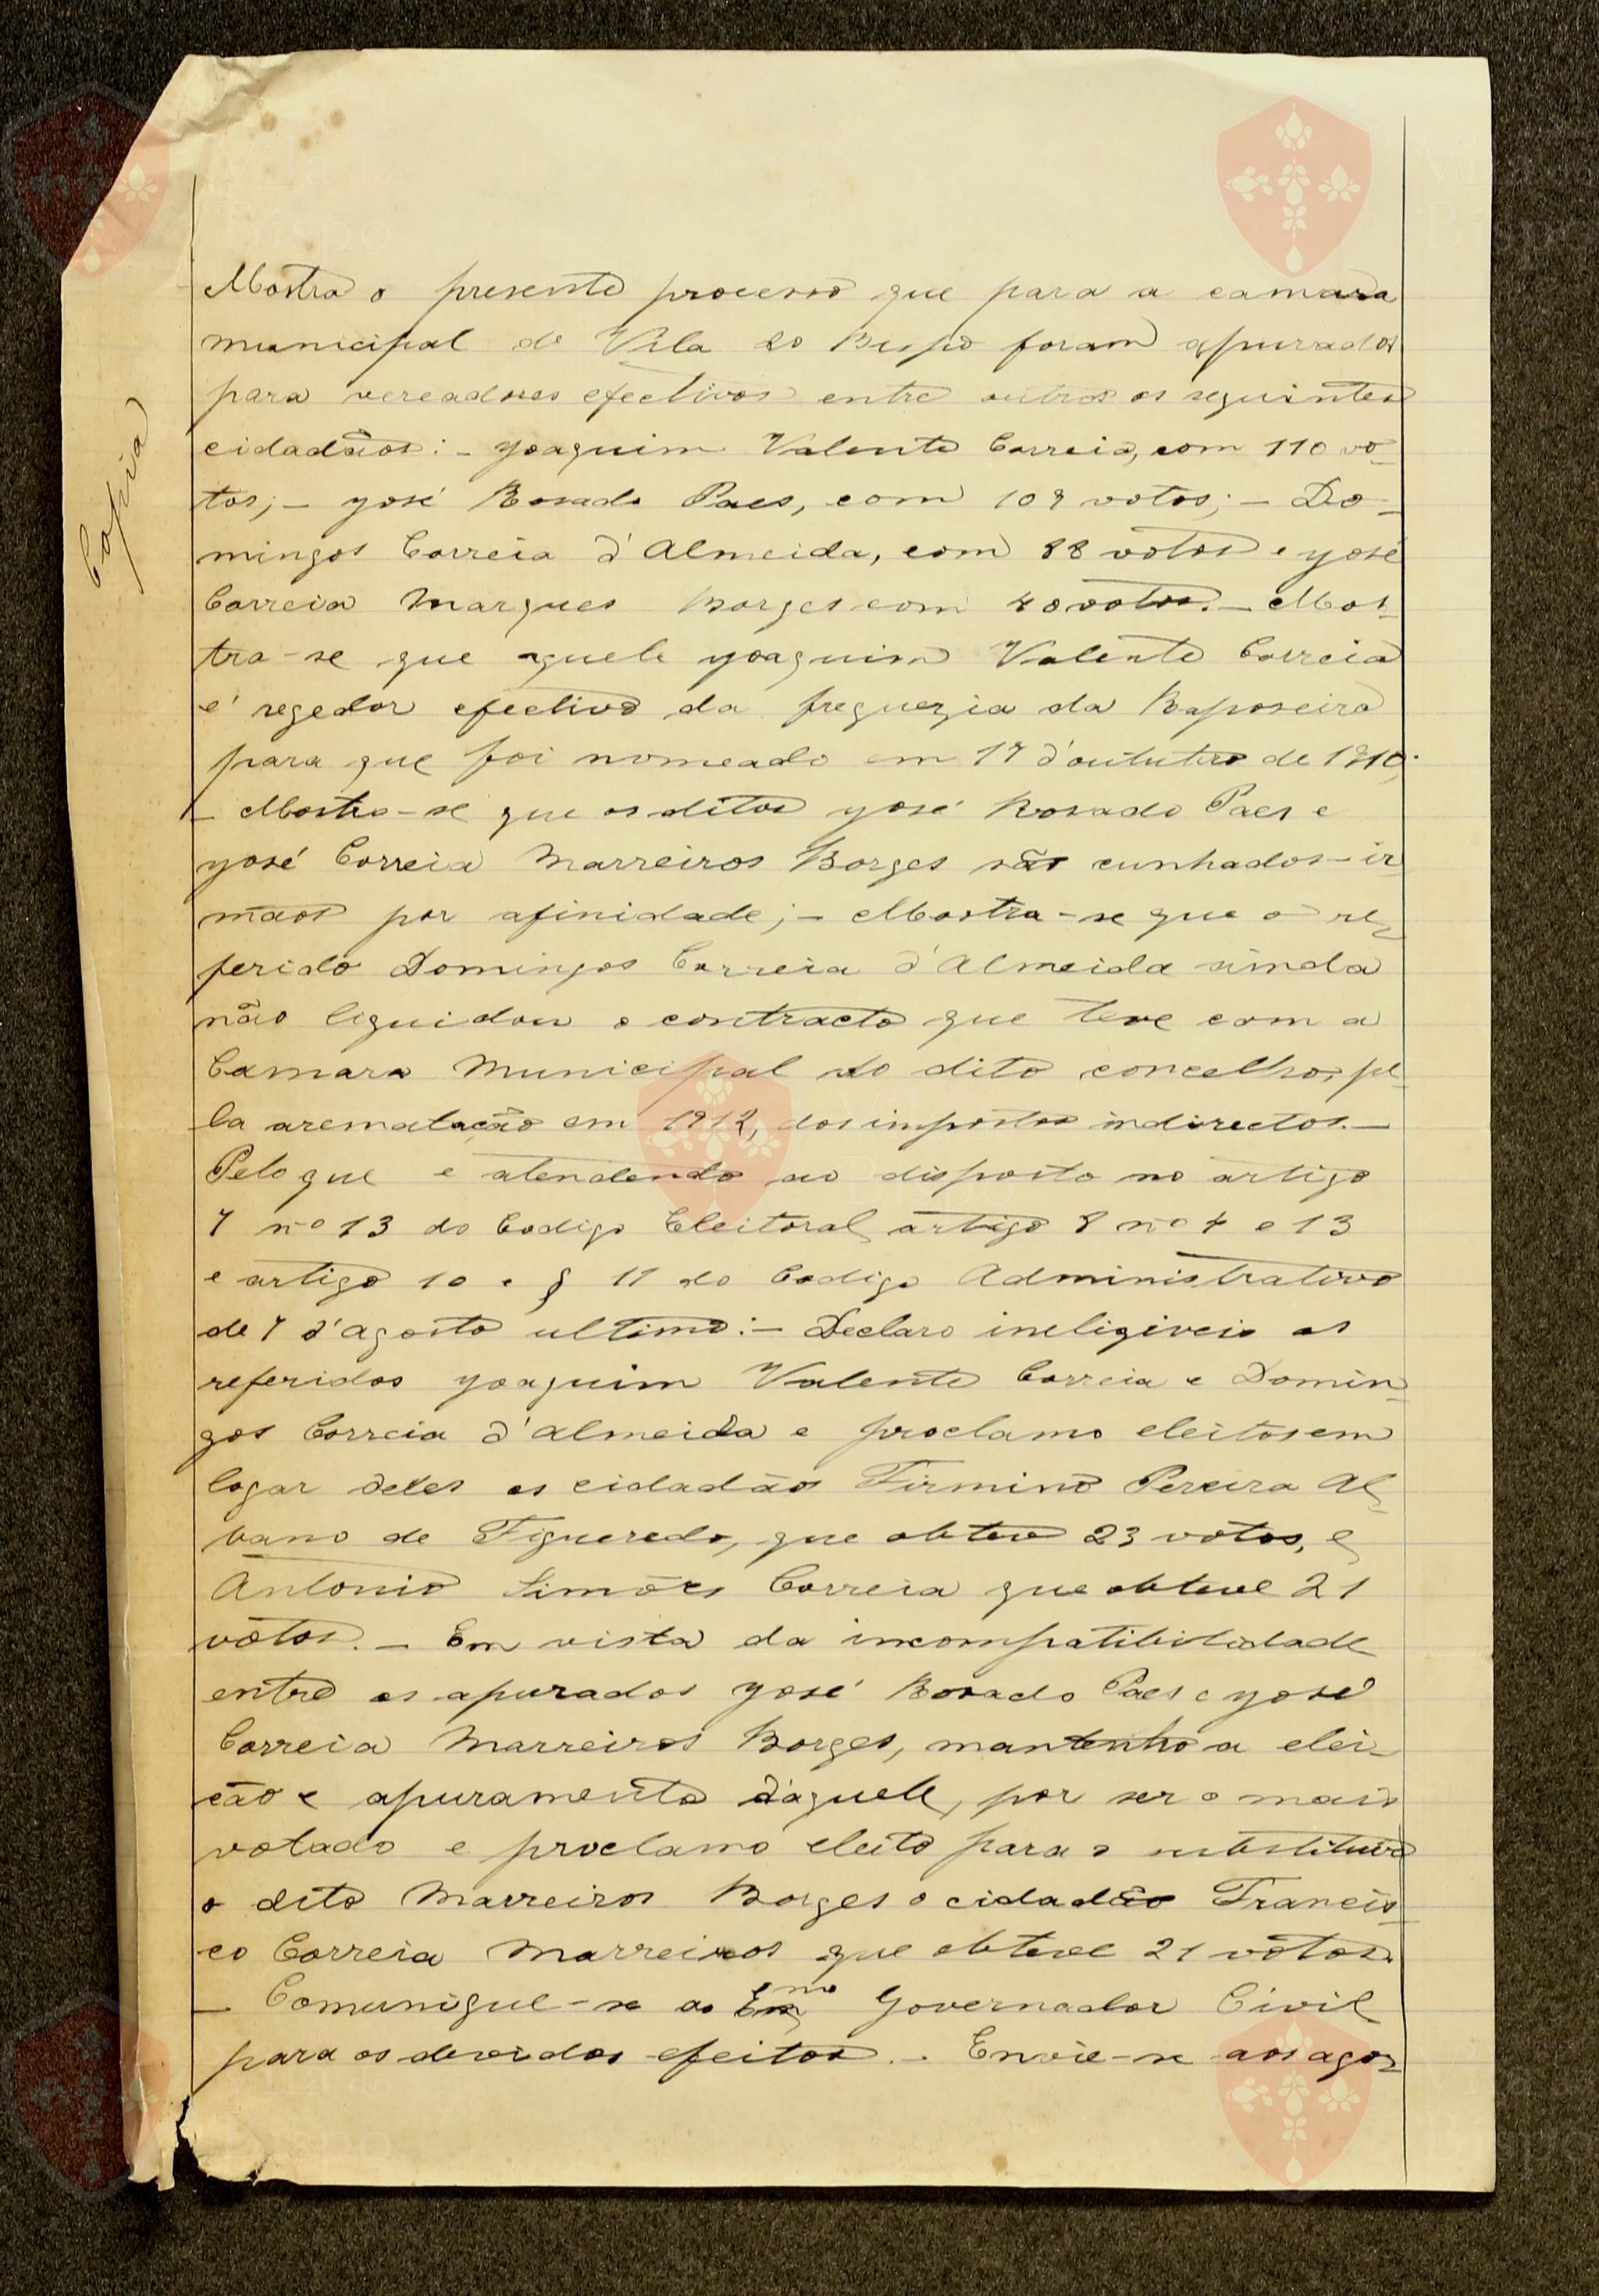 Copia
Mostra o presente processo que para a camara
municipal de Vila do Bispo foram apurados
para vereadores efectivos entre outros os seguintes
cidadãos: – Joaquim Valente Correia, com 110 vo-
tos; – José Rosado Paes, com 109 votos; – Do-
mingos Correia d'Almeida, com 88 votos e José
Correia Marques Borges com 40 votos. – Mos-
tra-se que aquele Joaquim Valente Correia
é regedor efectivo da freguezia da Raposeira
para que foi nomeado em 17 d'outubro de 1910;
– Mostra-se que os ditos José Rosado Paes e
José Correia Marreiros Borges são cunhados – ir
mãos por afinidade; – Mostra-se que o re-
ferido Domingos Correia d'Almeida ainda
não liquidou o contracto que teve com a
Camara Municipal do dito concelho, pe-
la arematação em 1912, dos impostos indirectos. –
Pelo que e atendendo ao disposto no artigo
7 nº 13 do Codigo Eleitoral, artigo 8 nº 4 e 13
e artigo 10 e § 11 do Codigo Administrativo
de 7 d'agosto ultimo: – Declaro ineligiveis os
referidos Joaquim Valente Correia e Domin-
gos Correia d'Almeida e proclamo eleitos em
logar deles os cidadãos Firmino Pereira Al-
bano de Figueredo, que obteve 23 votos, e
Antonio Simões Correia que obteve 21
votos. – Em vista da incompatibilidade
entre os apurados José Rosado Paes e José
Correia Marreiros Borges, mantenho a elei-
ção e apuramento d'aquele, por ser o mais
votado e proclamo eleito para o substituir
o dito Marreiros Borges o cidadão Francis-
co Correia Marreiros que obteve 21 votos.
– Comunique-se ao Exmo Governador Civil
para os devidos efeitos. – Envie-se aos agor-